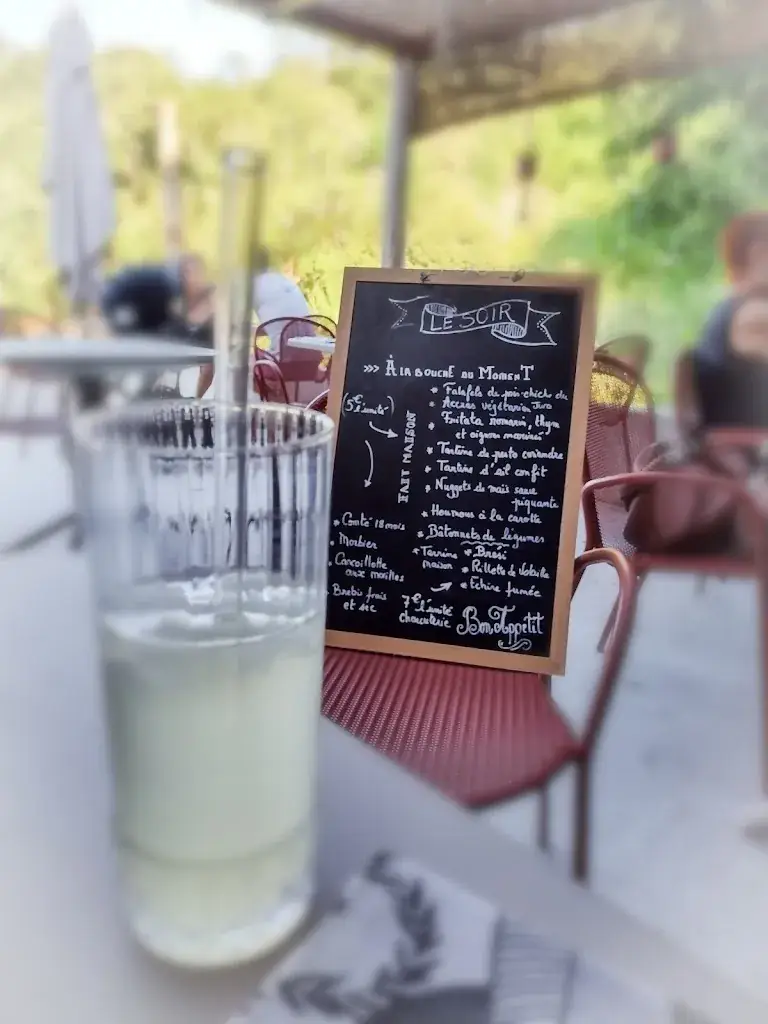 LE SOIR
>>> À LA BOUCHE DU MOMENT
(5€ l'unité)
FAIT MAISON
* Falafels de pois-chiche du
* Accras végétarien Jura
* Fritata romarin, thym
et oignon marinés
* Tartine de pesto coriandre
* Tartine d'ail confit
* Nuggets de maïs sauce
piquante
* Houmous à la carotte
* Bâtonnets de légumes
* Comté 18 mois
* Morbier
* Cancoillotte
aux morilles
* Brebis frais
et sec
* Terrine maison
* Brési
* Rillette de Volaille
* Echine fumée
7€ l'unité
charcuterie
Bon Appetit